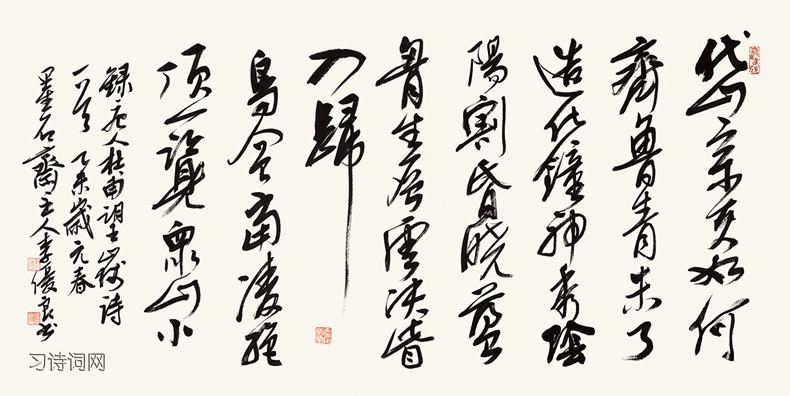 岱宗夫如何
齊魯青未了
造化鐘神秀陰
陽割昏曉盪
胷生層雲決眥
入歸
鳥會當凌絕
頂一覽眾山小
錄唐人杜甫望嶽詩
一首 乙未歲元春
墨石齋主人李優良書
习诗词网